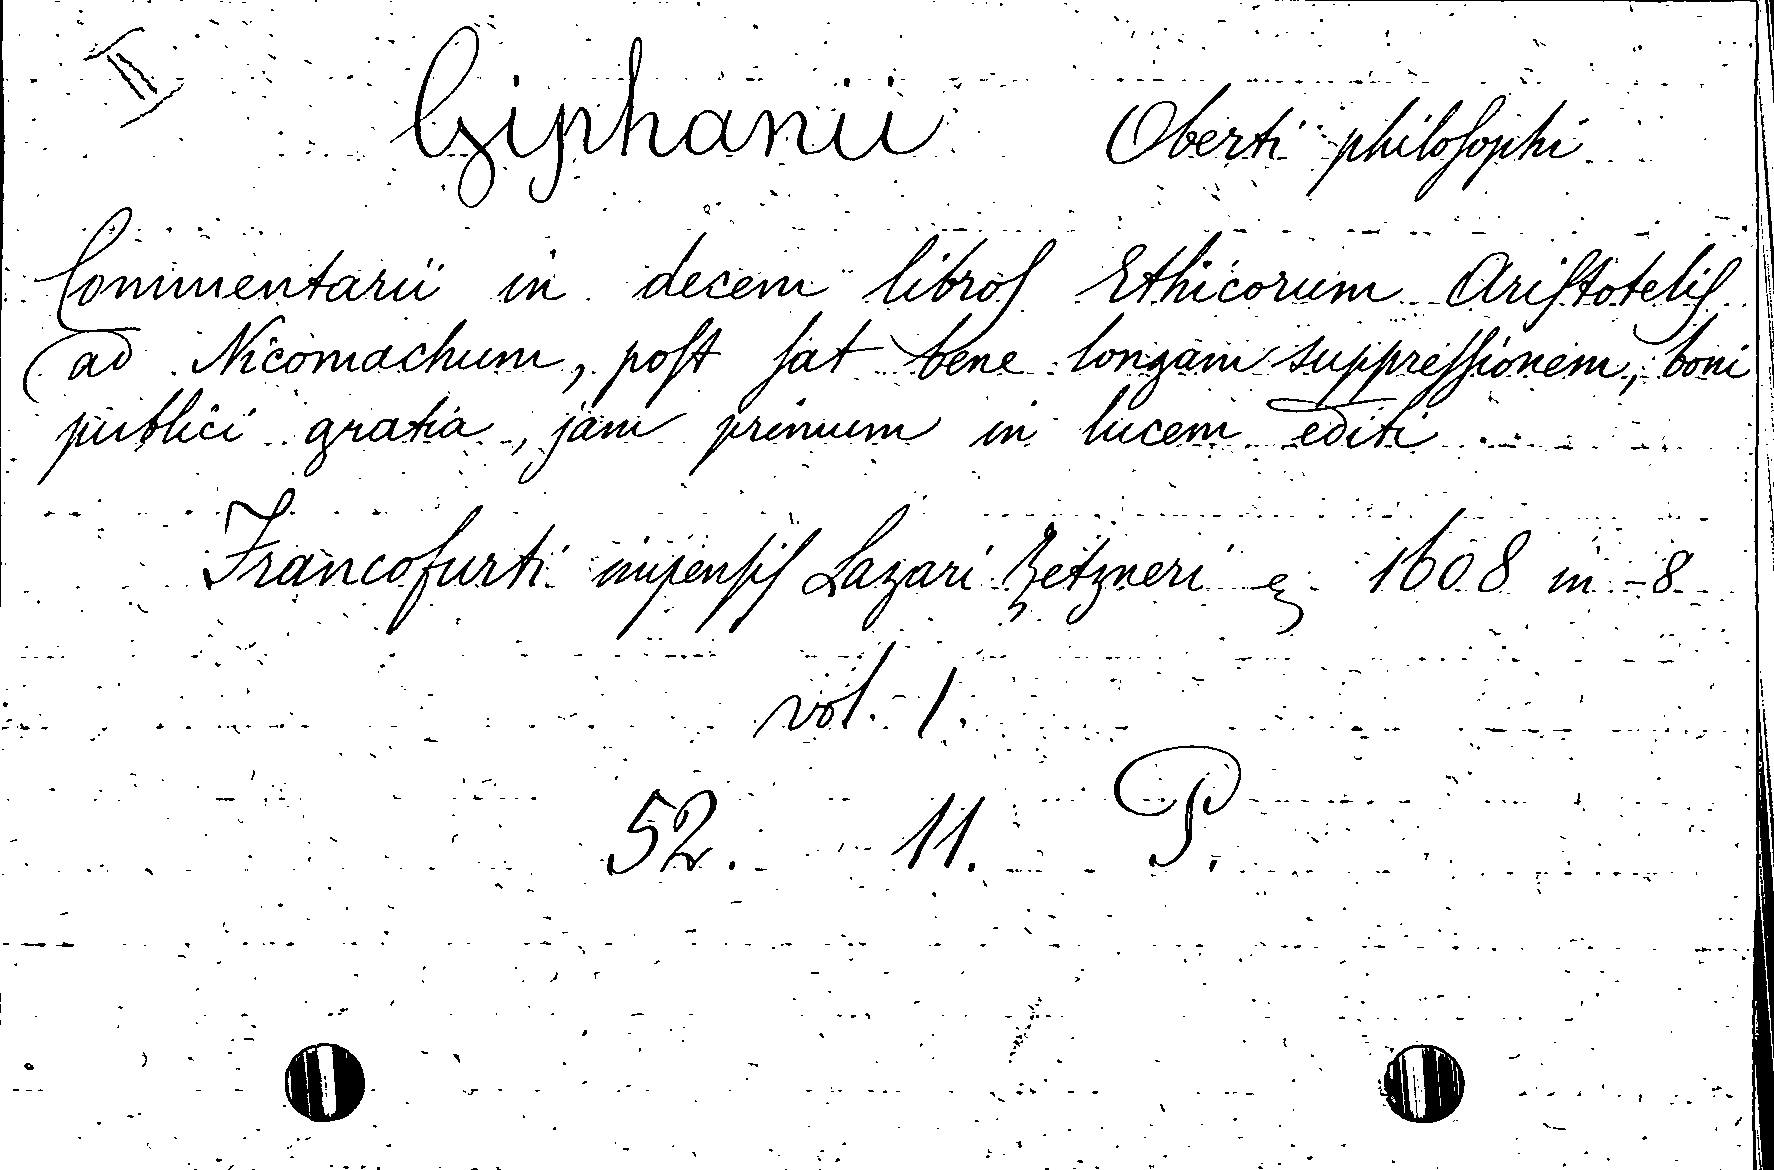 II
Giphanii Oberti philosophi
Commentarii in decem libros Ethicorum Aristotelis
ad Nicomachum, post sat bene longam suppressionem, boni
publici gratia, jam primum in lucem editi
Francofurti impensis Lazari Zetzneri 1608 in-8
vol. 1.
52. 11. P.